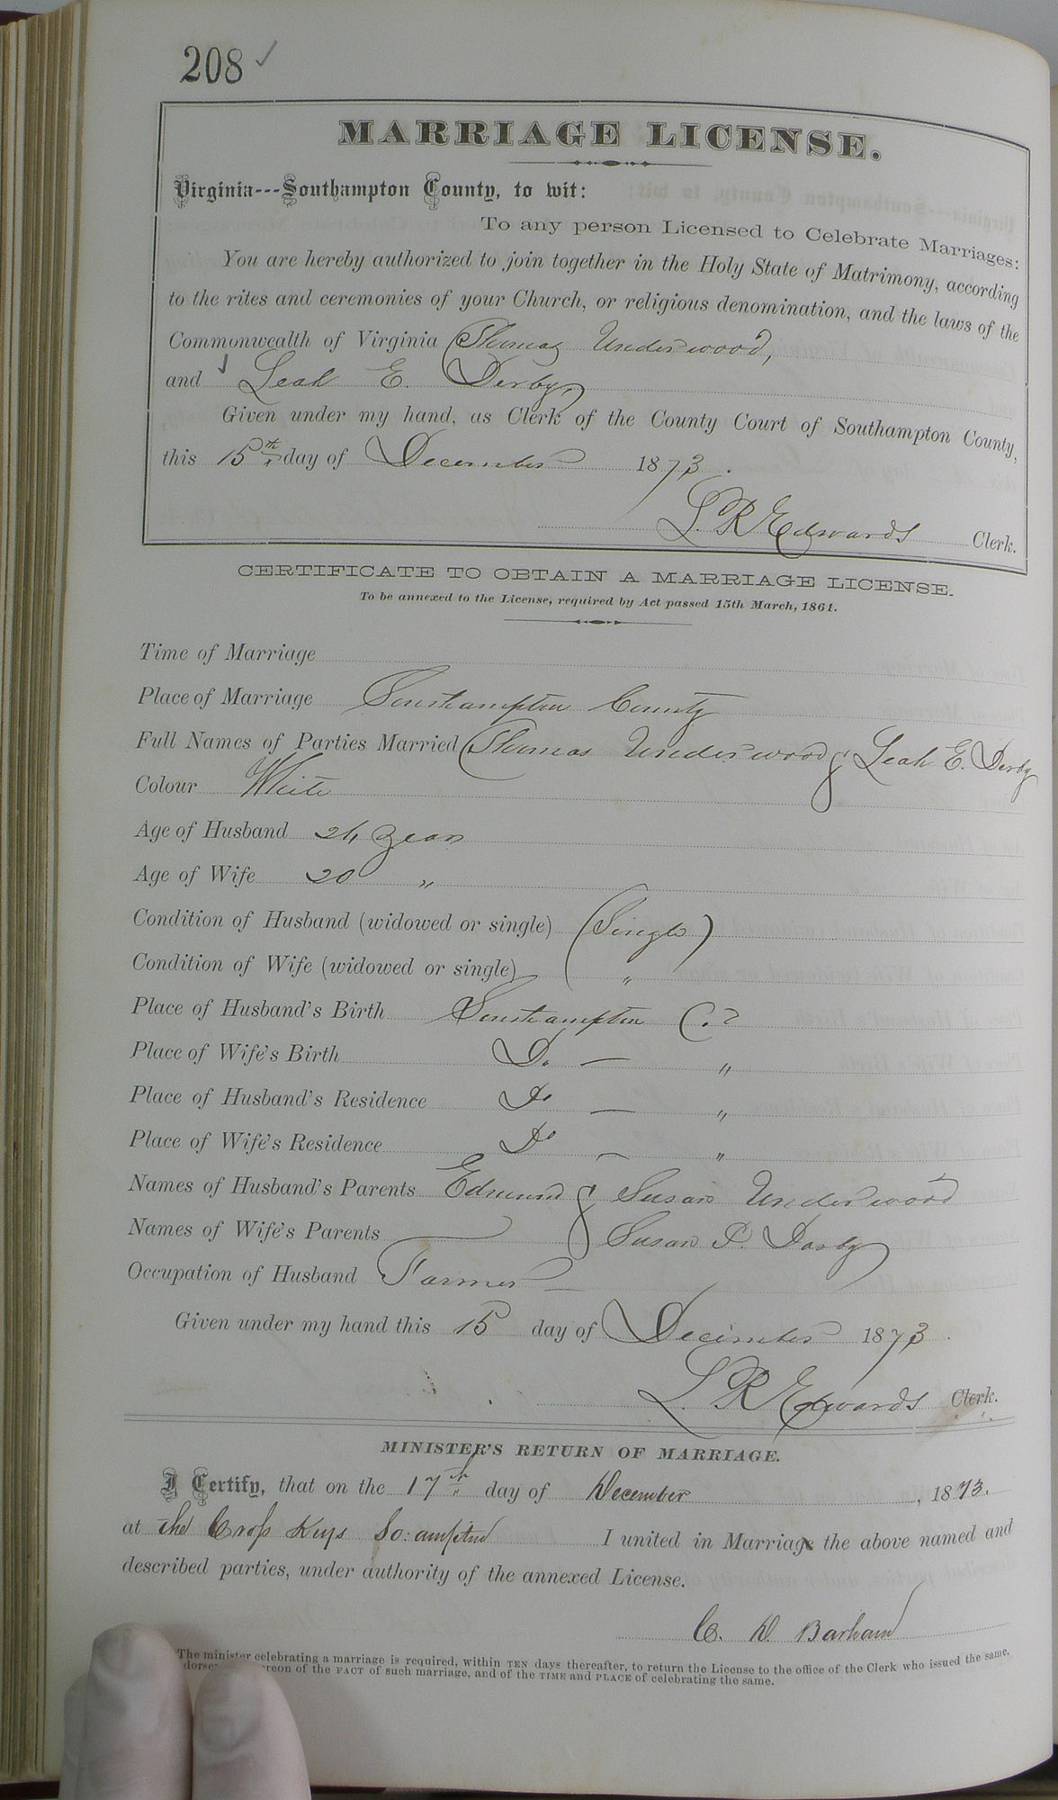 208 ✓
MARRIAGE LICENSE.
Virginia---Southampton County, to wit:
To any person Licensed to Celebrate Marriages:
You are hereby authorized to join together in the Holy State of Matrimony, according
to the rites and ceremonies of your Church, or religious denomination, and the laws of the
Commonwealth of Virginia Thomas Underwood,
and Leah E. Derby,
Given under my hand, as Clerk of the County Court of Southampton County,
this 15th day of December 1873.
L. R. Edwards Clerk.
CERTIFICATE TO OBTAIN A MARRIAGE LICENSE.
To be annexed to the License, required by Act passed 15th March, 1861.
Time of Marriage
Place of Marriage Southampton County
Full Names of Parties Married Thomas Underwood & Leah E. Derby
Colour White
Age of Husband 24 years
Age of Wife 20 "
Condition of Husband (widowed or single) (Single)
Condition of Wife (widowed or single) "
Place of Husband's Birth Southampton Co.
Place of Wife's Birth Do. — "
Place of Husband's Residence Do — "
Place of Wife's Residence Do — "
Names of Husband's Parents Edmund & Susan Underwood
Names of Wife's Parents & Susan P. Darby
Occupation of Husband Farmer —
Given under my hand this 15 day of December 1873.
L. R. Edwards Clerk.
MINISTER'S RETURN OF MARRIAGE.
I Certify, that on the 17th day of December, 1873.
at the Cross Keys So:ampton I united in Marriage the above named and
described parties, under authority of the annexed License.
C. W. Barham
The minister celebrating a marriage is required, within TEN days thereafter, to return the License to the office of the Clerk who issued the same,
of the FACT of such marriage, and of the TIME and PLACE of celebrating the same.